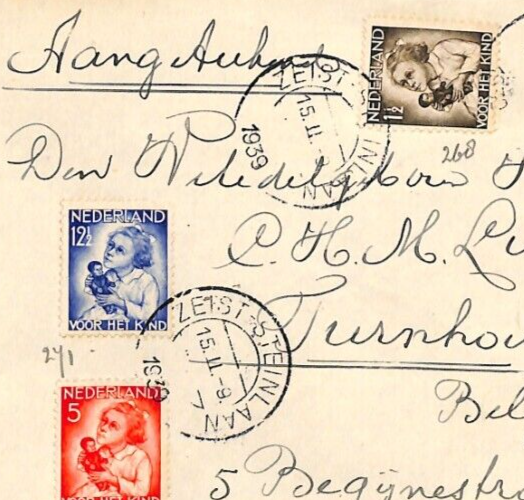 Aangetekend
NEDERLAND
1½
VOOR HET KIND
ZEIST-STEINLAAN
15.II.-9
1939
268
Den
C. H. M.
NEDERLAND
12½
VOOR HET KIND
ZEIST-STEINLAAN
15.II.-9
7
1939
Turnhou
271
NEDERLAND
5
VOOR HET KIND
Bel
5 Begijnestr